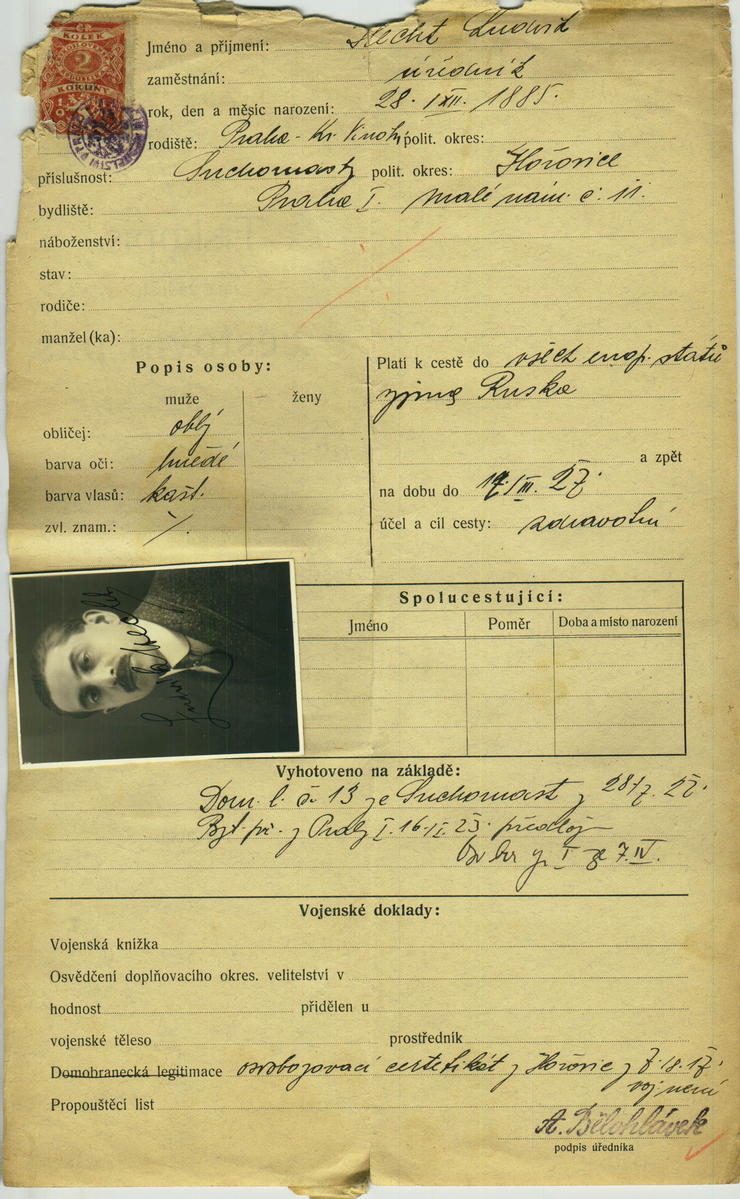 KOLEK
2
KORUNY
Jméno a přijmení: Hecht Ludvík
zaměstnání: úředník
rok, den a měsíc narození: 28. /XII. 1885.
rodiště: Praha - Kr. polit. okres:
příslušnost: Suchomasty polit. okres: Hořovice
bydliště: Praha I. malé nám. č. 11.
náboženství:
stav:
rodiče:
manžel (ka):
Popis osoby:
muže ženy
obličej: oblý
barva očí: hnědé
barva vlasů: kašt.
zvl. znam.: /.
Platí k cestě do všech evrop. států
vyjma Ruska
a zpět
na dobu do 17./III. 27.
účel a cíl cesty: zdravotní
Spolucestující:
Jméno Poměr Doba a místo narození
Vyhotoveno na základě:
Dom. l. č. 13 ze Suchomast z 28/7. 22.
Byt. př. z Prahy I. 16./I. 23.
7. IV.
Vojenské doklady:
Vojenská knížka
Osvědčení doplňovacího okres. velitelství v
hodnost přidělen u
vojenské těleso prostředník
Domobranecká legitimace osvobozovací certifikát z Hořovic z
vojnení
Propouštěcí list
A. Bělohlávek
podpis úředníka